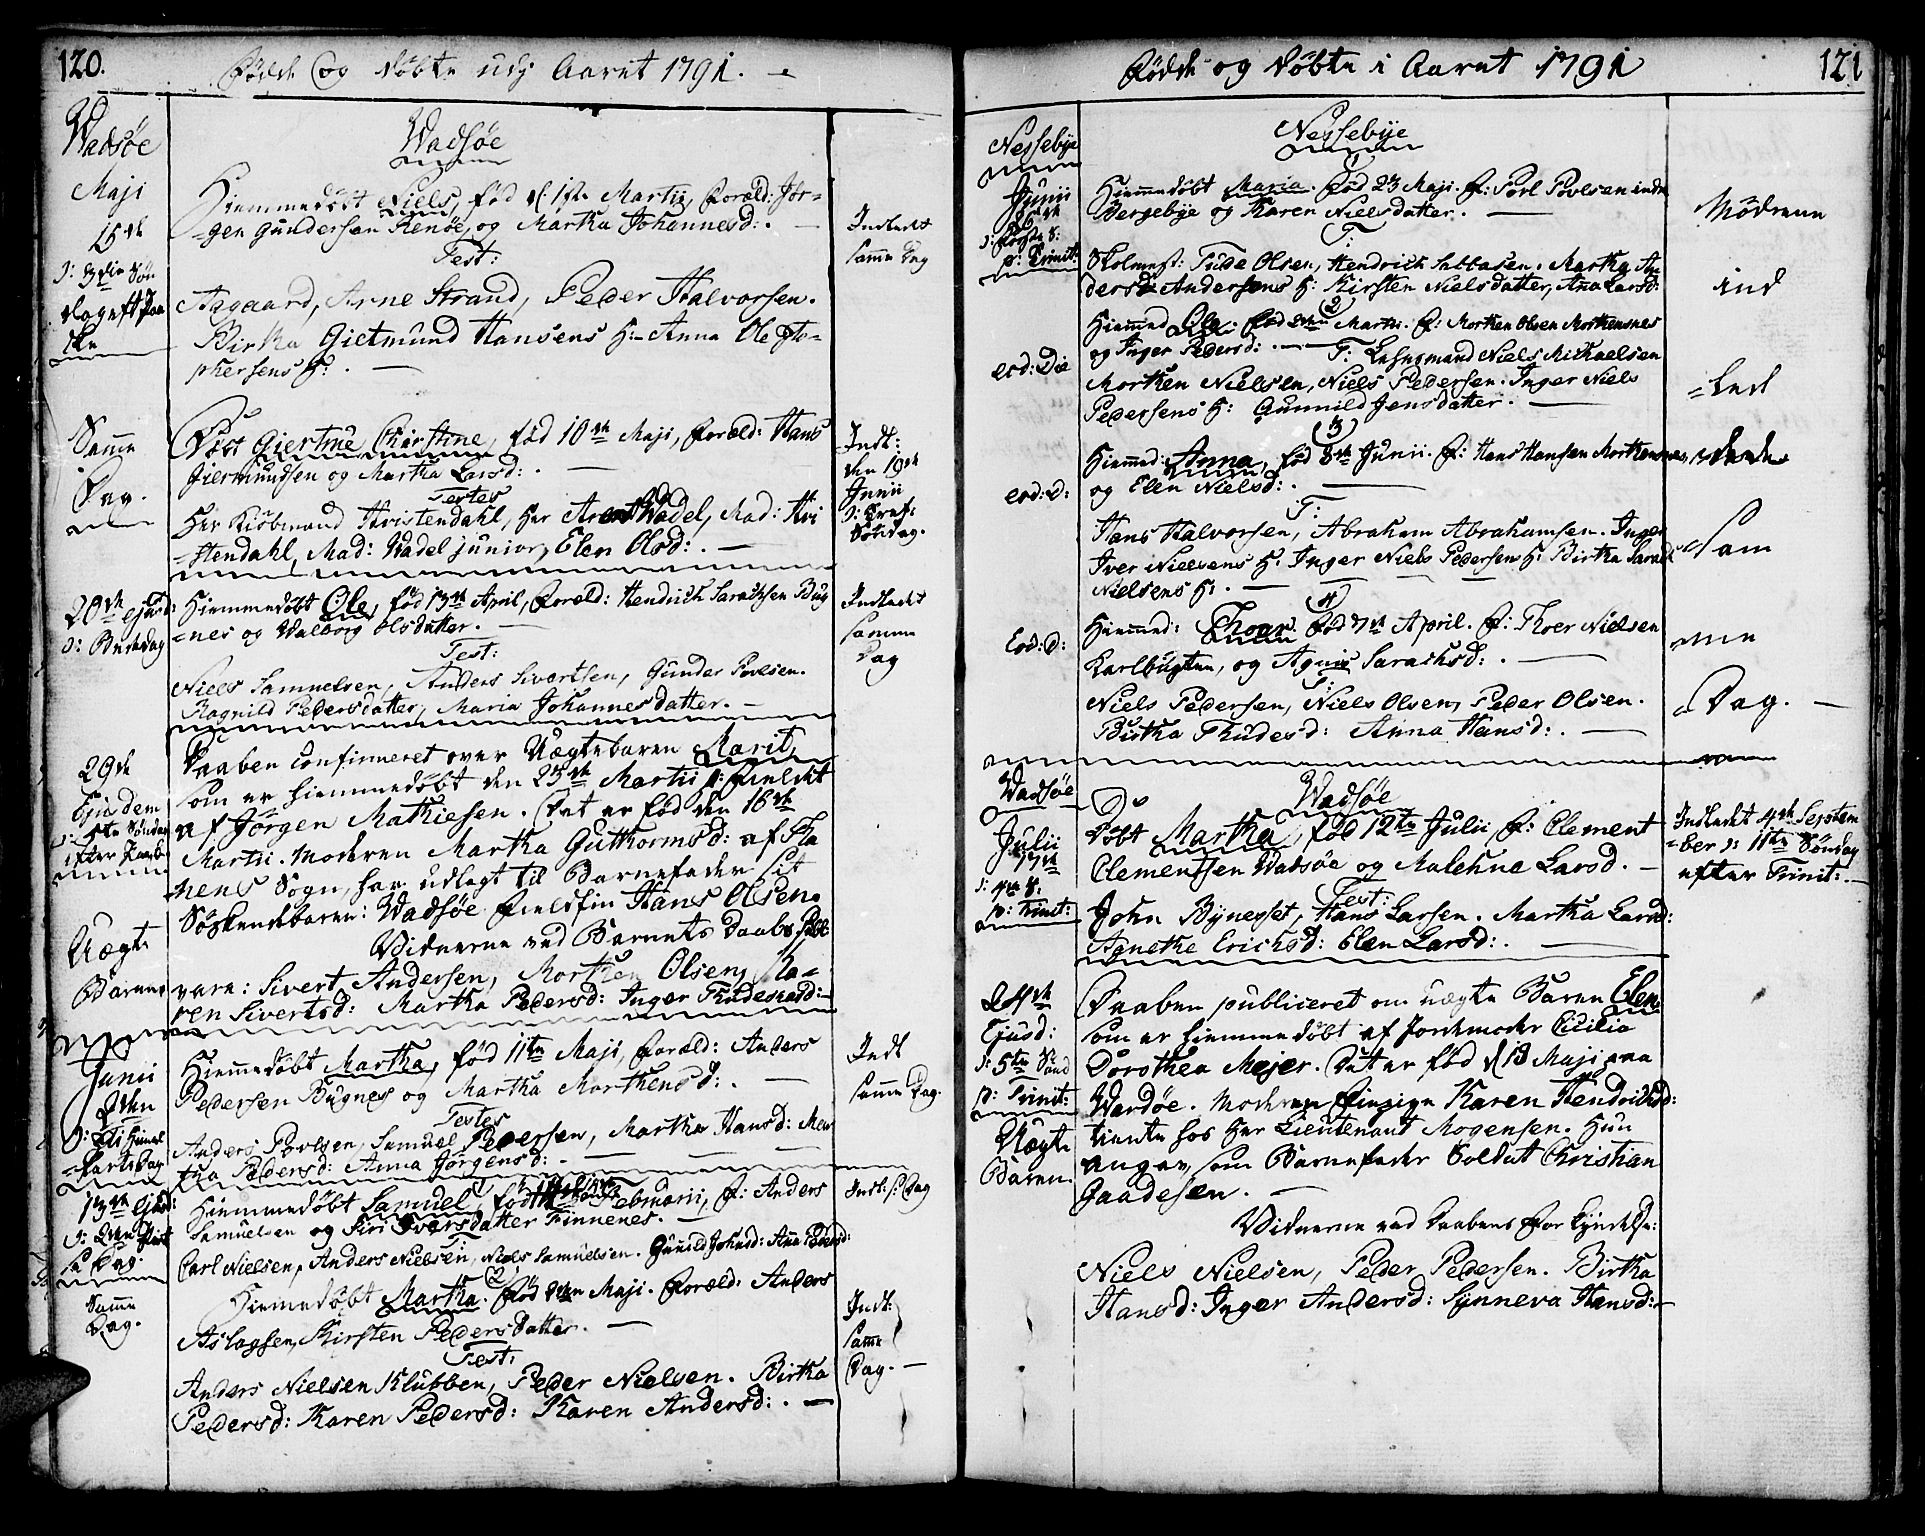 120.
Fødde og døbte udj Aaret 1791.
Wadsøe
Maji
15de
ɔ: 3die Søn
dag eft Paa
ske
Wadsøe
Hiemmedøbt Niels, fød d: 1ste Martii, Foræld: Jør-
gen Gundersen Renøe, og Martha Johannesd:.
Test:
Aagaard, Arne Strand, Peder Halvorsen.
Birtha Gietmund Hansens H: Anna Ole
phersens H:.
Indledt
samme Dag
Samme
Dag.
Døbt Giertrue Christine, fød 10de Maji, Foræld: Hans
Giermundsen og Martha Larsd:.
Testes
Her Kiøbmand Hvistendahl, Her Arent Wadel, Mad: Hvi
stendahl, Mad: Wadel junior, Elen Olsd:.
Indt:
den 19de
Junii
ɔ: Tref:
Søndag.
20de Ejusd:
ɔ: Bededag
Hiemmedøbt Ole, fød 13de April, Foræld: Hendrich Sarachsen Bug
nes og Walborg Olsdatter.
Test:
Niels Samuelsen, Anders Sivertsen, Gunder Povelsen.
Ragnild Pedersdatter, Maria Johannesdatter.
Indledet
samme
Dag
29de
Ejusdem
ɔ: 5te Søndag
efter Paaske
Uægte
Barn
Daaben confirmeret over Uægtebarnet Marit,
som er hiemmedøbt den 23de Martii p: Fieldet
af Jørgen Mathiesen. Det er fød den 16de
Martii. Moderen Martha Guttormsd: af Tha
nens Sogn, har udlagt til Barnefader sit
Søskendebarn: Wadsøe Fieldfin Hans Olsen.
Vidnerne ved Barnets Daabs
vare: Sivert Andersen, Morthen Olsen, Ka-
ren Sivertsd: Martha Pedersd: Inger Thudesend:
Junii
2den
ɔ: Chr: Himel
fartsdag
Hiemmedøbt Martha, fød 11te Maji, Foræld: Anders
Pedersen Bugnes og Martha Morthensd:.
Testes
Anders Povlsen, Samuel Pedersen, Martha Hansd: Mar
tha Pedersd: Anna Jørgensd:.
Indt
samme Dag.
13de Ejusd:
ɔ: 2den Pint
se Dag.
Hiemmedøbt Samuel, fød Februarii, F: Anders
Samuelsen og Siri Iversdatter Finnenes.
Carl Nielsen, Anders Nielsen, Niels Samuelsen. Gunild Johnsd: Ana Pedersd:
Indt: s: Dag
Samme
Dag.
2
Hiemmedøbt Martha. fød 2den Maji. Foræld: Anders
Aslagsen, Kirsten Pedersdatter.
Test:
Anders Nielsen Klubben, Peder Nielsen. Birtha
Pedersd: Karen Pedersd: Karen Andersd:.
Indt:
samme
Dag.
Fødde og døbte i Aaret 1791
121
Nessebye
Junii
26de
ɔ: første S:
p: Trinit:
Nessebye
1
Hiemmedøbt Maria. fød 23 Maji. F: Povl Povelsen indre
Bergebye og Karen Nielsdatter.
T:
Skolemest: Tude Olsen, Hendrich Sabbasen. Martha An
dersd: Andersens H: Kirsten Nielsdatter, Ana Larsd:
2
eod: Die
Hiemmed Ole. fød 2den Martii. F: Morthen Olsen Morthensnes
og Inger Pedersd:. T: Lehnsmand Niels Michaelsen
Morthen Nielsen, Niels Pedersen. Inger Niels
Pedersens H: Gunnild Jensdatter.
3
eod: D:
Hiemmed: Anna, fød 8de Junii. F: Hans Hansen Morthensnes
og Elen Nielsd:.
T:
Hans Halvorsen, Abraham Abrahamsen. Inger
Iver Nielsens H: Inger Niels Pedersens H: Birtha Sarach
Nielsens H:.
4
Eod: D:
Hiemmed: Thoer fød 7de April. F: Thoer Nielsen
Karlbugten, og Agnis Sarachsd:.
T:
Niels Pedersen, Niels Olsen, Peder Olsen.
Birtha Thudesd: Anna Hansd:.
Mødrene
ind
led
Sam
me
Dag.
Wadsøe
Julii
17de
ɔ: 4de S:
p: Trinit:
Wadsøe
Døbt Martha, fød 12te Julii F: Clement
Clementsen Wadsøe og Malehne Larsd.
Test:
John Bynesset, Hans Larsen. Martha Larsd:
Agnethe Erichsd: Elen Larsd:.
Indledet 4de Septem
ber ɔ: 11te Søndag
efter Trinit:.
24de
Ejusd:
ɔ: 5te Sønd
p: Trinit:
Uægte
Barn.
Daaben publiceret om uægte Barn Elen
som er hiemmedøbt af Jordemoder Cicilia
Dorothea Mejer. Det er fød d 13 Maji paa
Wardøe. Moderen Karen Hendrichsd:
tiente hos Her Lieutenant Mogensen. Hun
angav, som Barnefader Soldat Christian
Gaadesen.
Vidnerne ved Daabens Forkyndelse:
Niels Nielsen, Peder Pedersen. Birtha
Hansd: Inger Andersd: Synneva Hansd: